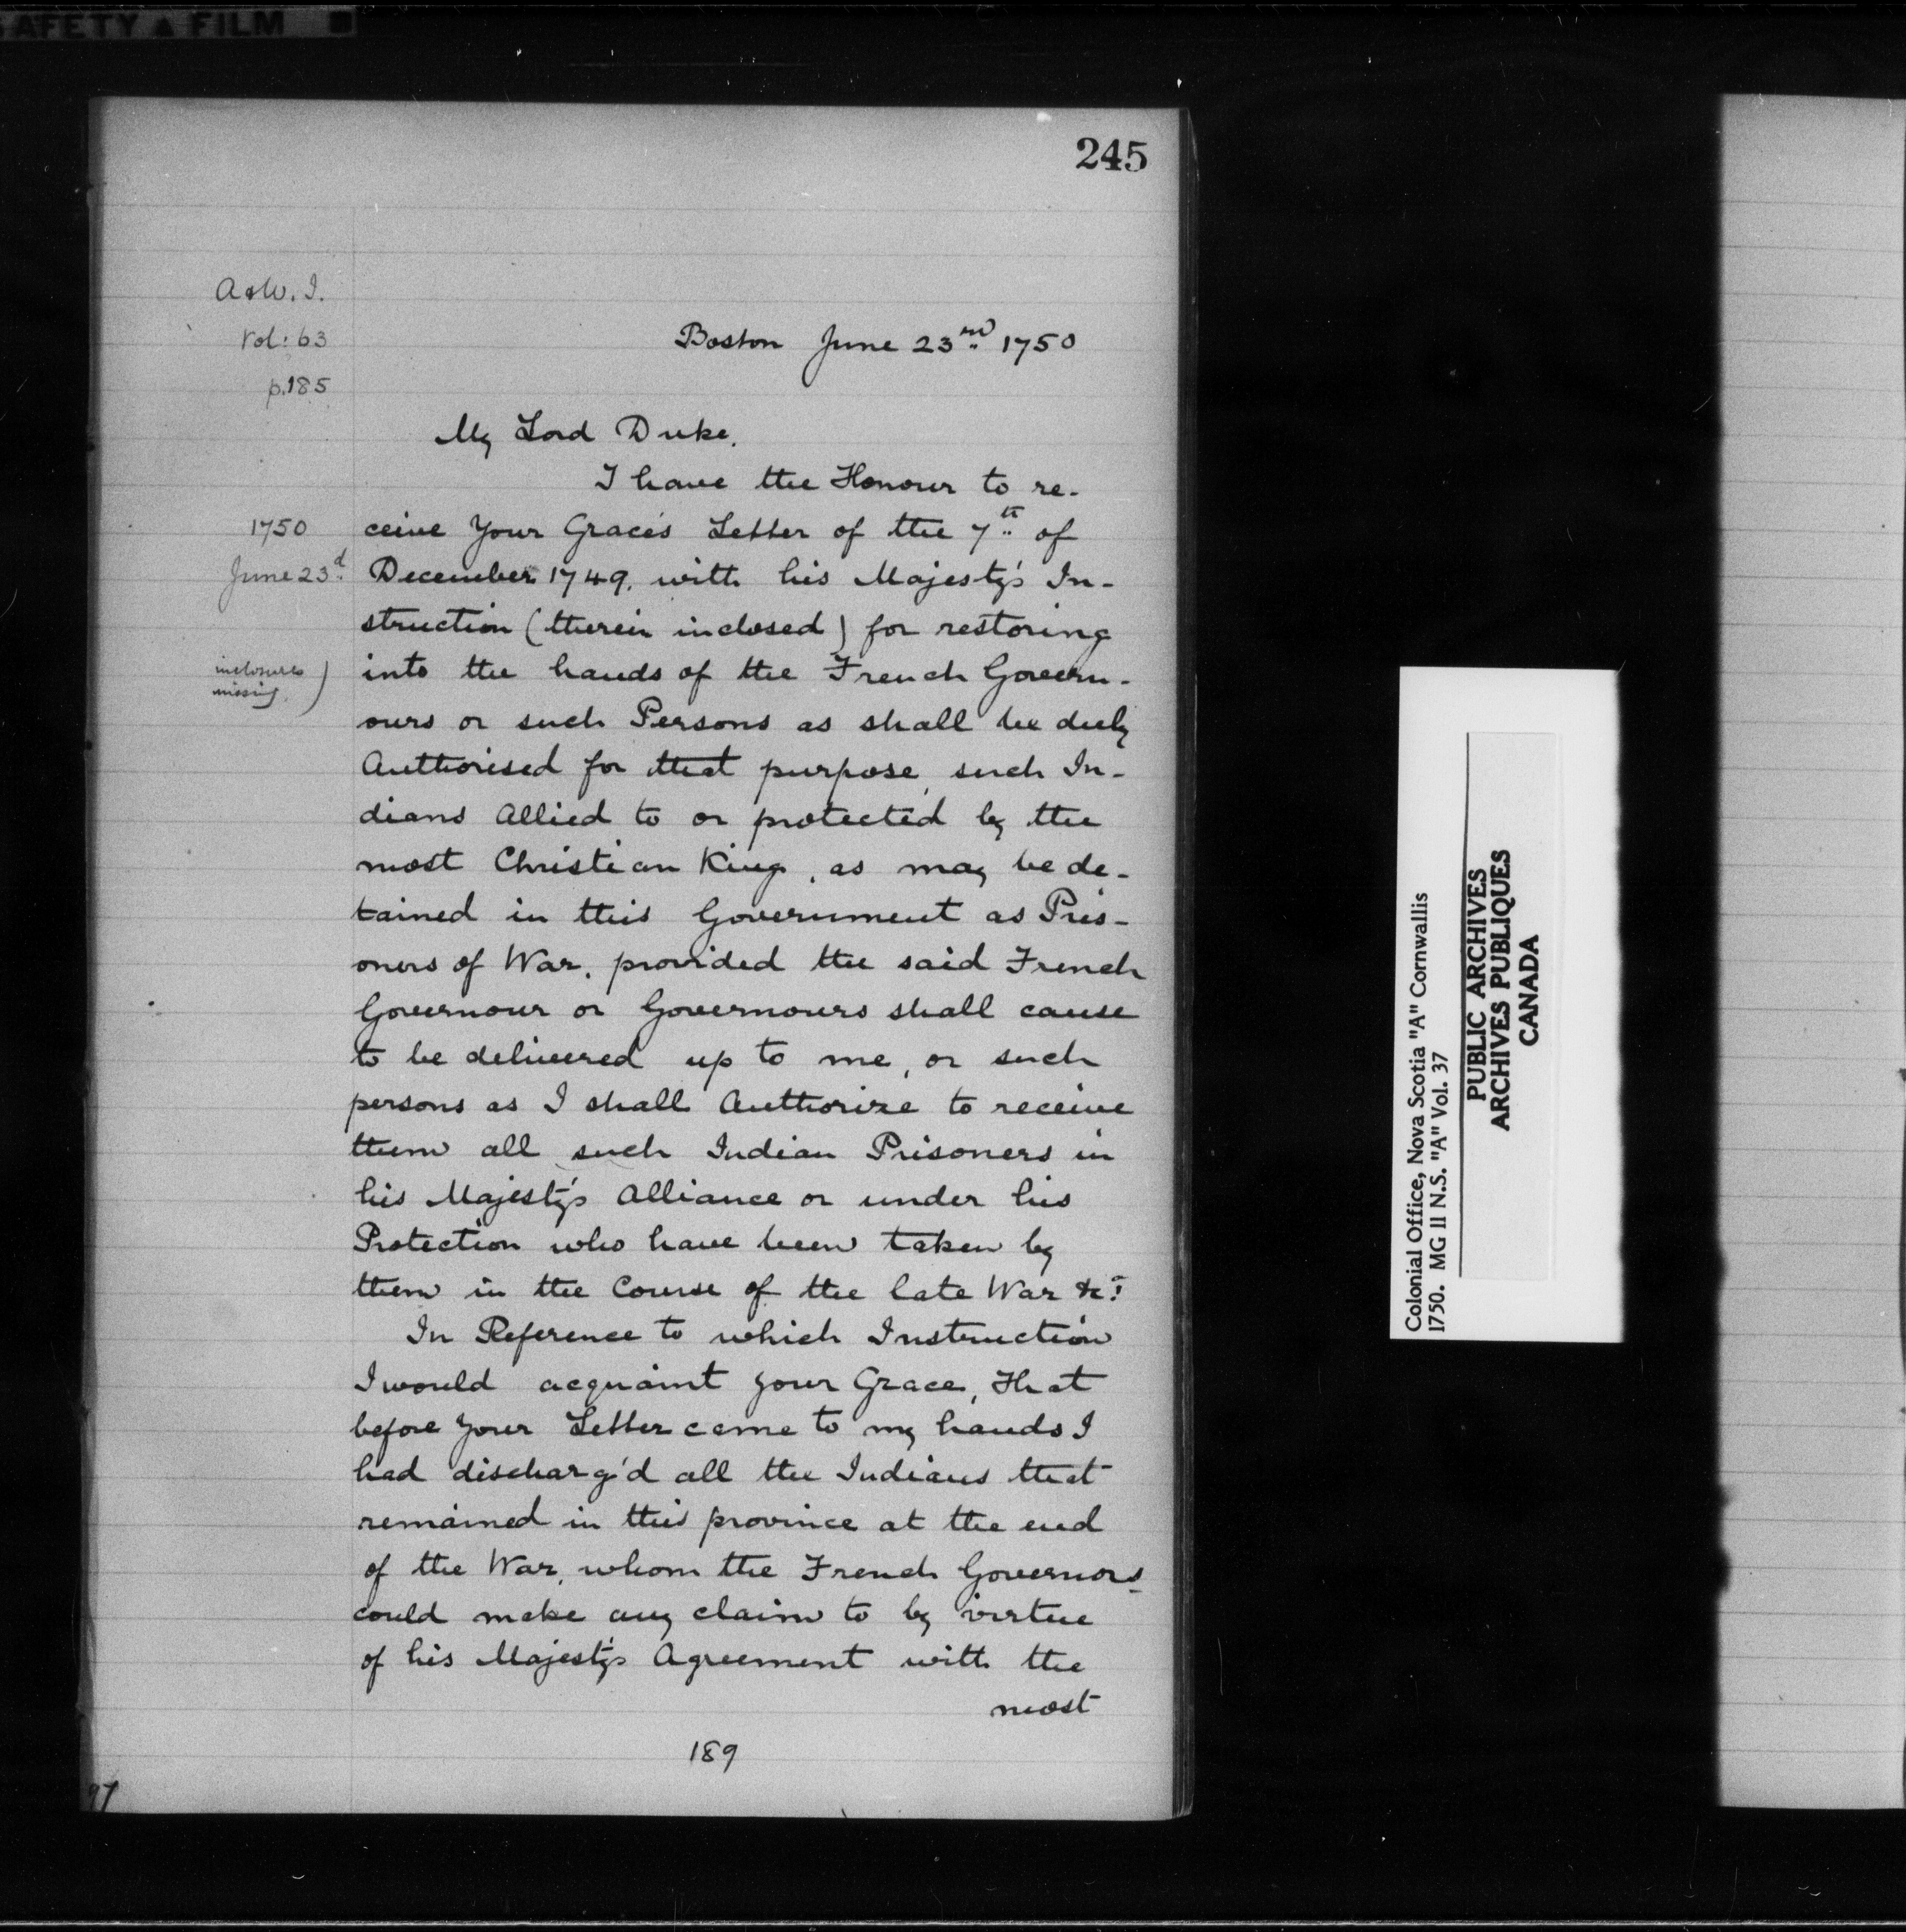 SAFETY ▲ FILM ■
245
A & W. I.
Vol: 63
p. 185
Boston June 23rd 1750
My Lord Duke,
I have the Honour to re-
1750
ceive Your Grace's Letter of the 7th of
June 23d
December 1749, with his Majesty's In-
struction (therein inclosed) for restoring
inclosures
missing )
into the hands of the French Govern-
ours or such Persons as shall be duly
Authorised for that purpose, such In-
dians Allied to or protected by the
most Christian King, as may be de-
tained in this Government as Pris-
oners of War, provided the said French
Governour or Governours shall cause
to be delivered up to me, or such
persons as I shall Authorize to receive
them all such Indian Prisoners in
his Majesty's Alliance or under his
Protection who have been taken by
them in the Course of the late War &c.a
In Reference to which Instruction
I would acquaint your Grace, That
before your Letter came to my hands I
had discharg'd all the Indians that
remained in this province at the end
of the War, whom the French Governors
could make any claim to by virtue
of his Majesty's Agreement with the
most
189
97
Colonial Office, Nova Scotia "A" Cornwallis
1750. MG 11 N.S. "A" Vol. 37
PUBLIC ARCHIVES
ARCHIVES PUBLIQUES
CANADA